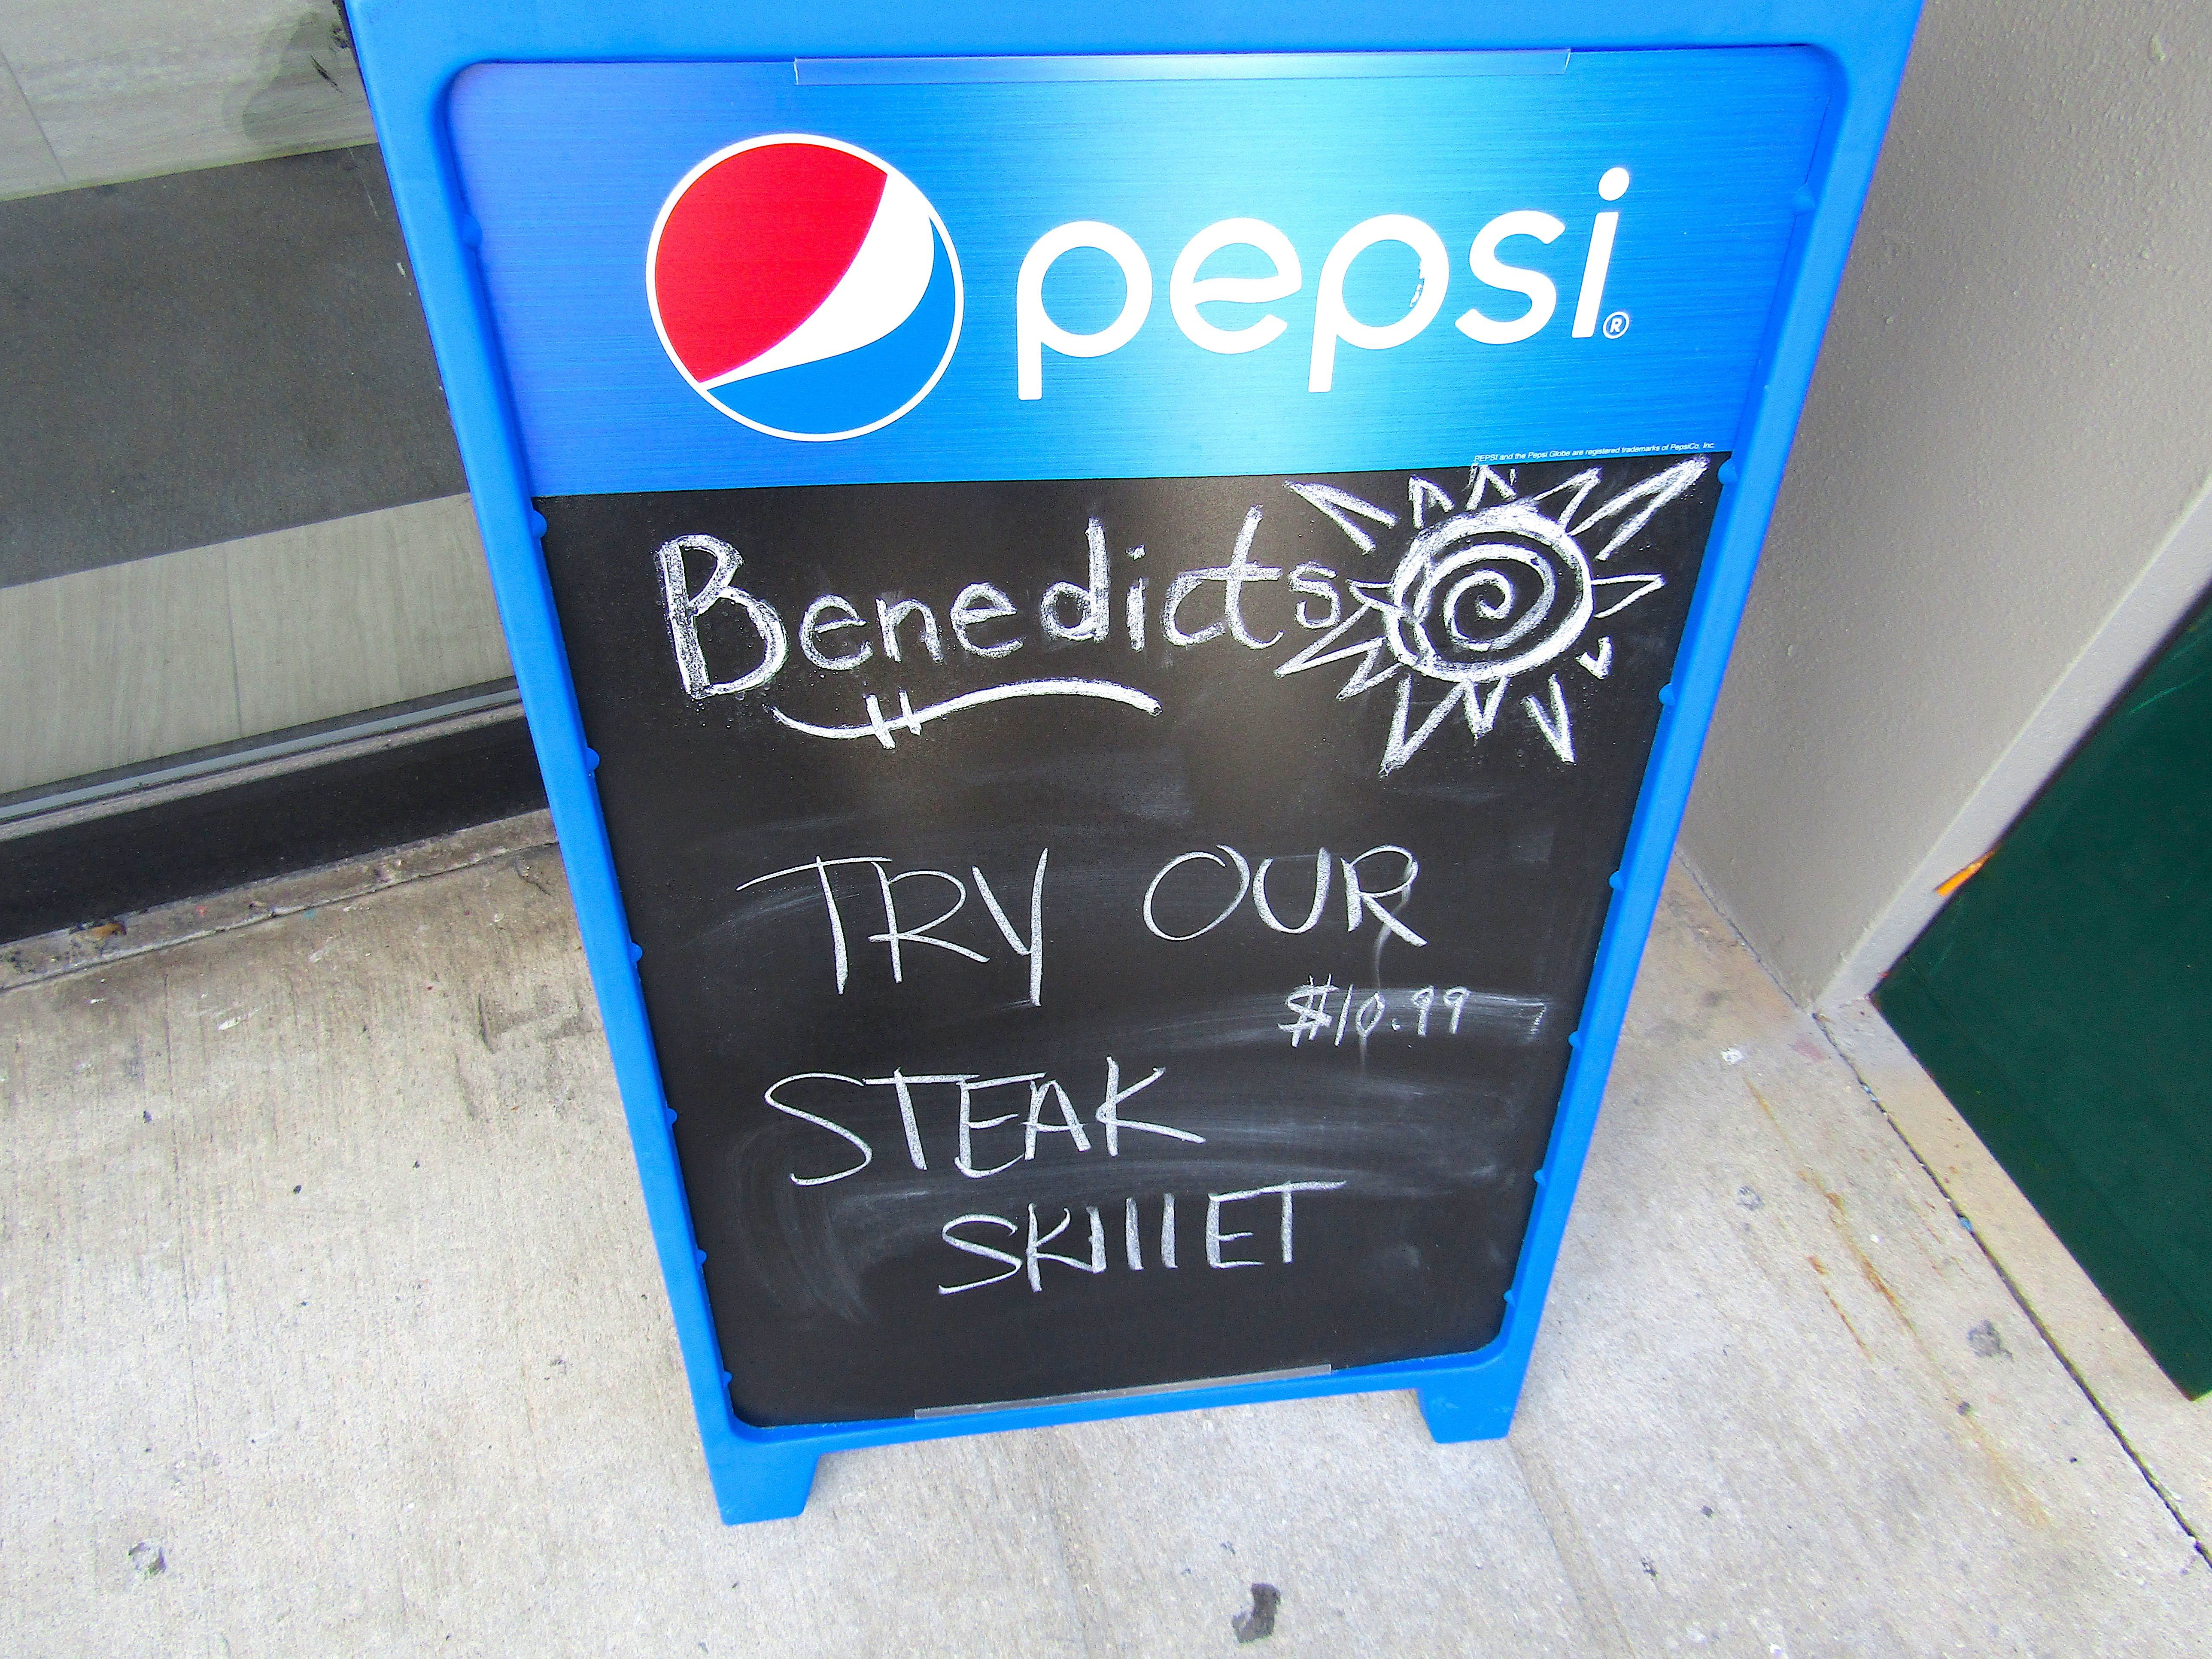 pepsi®
PEPSI and the Pepsi Globe are registered trademarks of PepsiCo, Inc.
Benedicts
TRY OUR
$10.99
STEAK
SKIllET